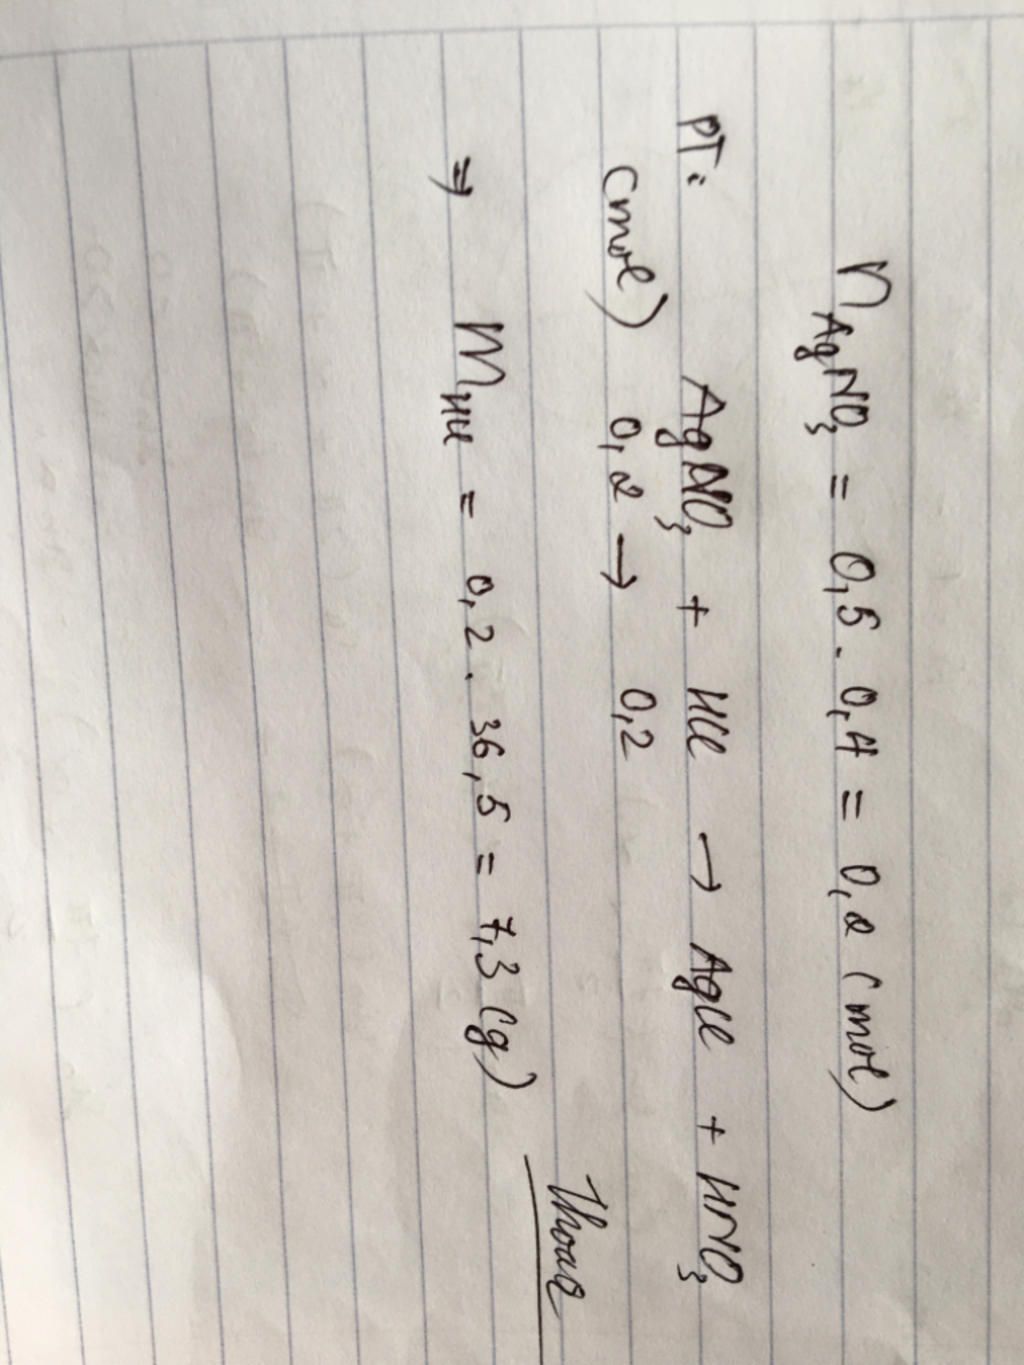 n AgNO₃ = 0,5 . 0,4 = 0,2 (mol)
PT: AgNO₃ + HCl → AgCl + HNO₃
(mol) 0,2 → 0,2
⇒ m HCl = 0,2 . 36,5 = 7,3 (g)